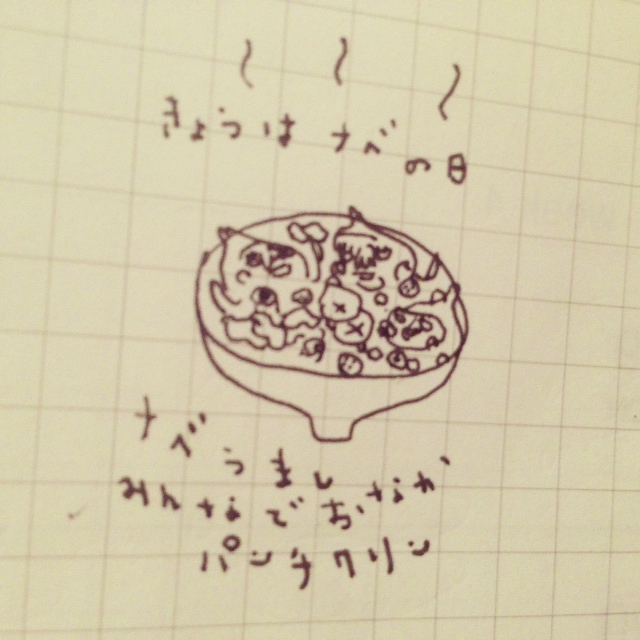 きょうは ナベの日
ナベ うまし
みんなでちゃなか
パンチクリン